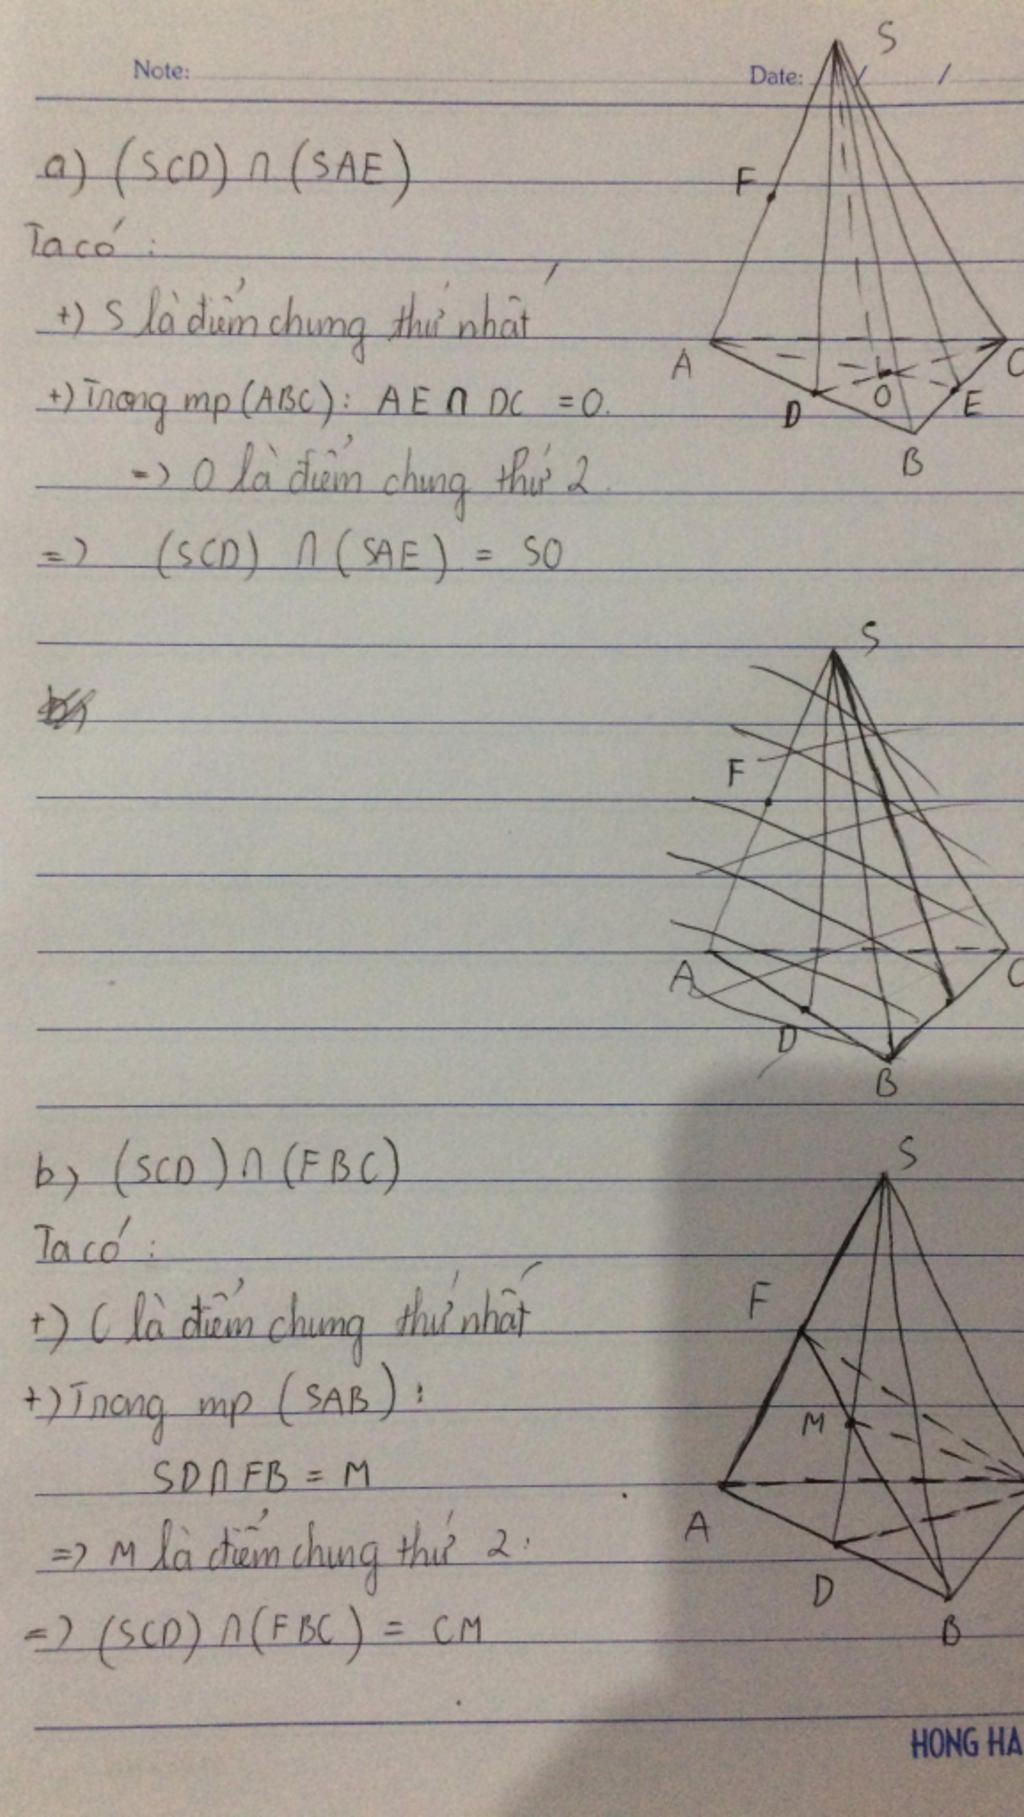 S
Note: Date: / /
a) (SCD) ∩ (SAE)
F
Ta có :
+) S là điểm chung thứ nhất
A C
+) Trong mp (ABC): AE ∩ DC = O.
D O E
B
=) O là điểm chung thứ 2.
=) (SCD) ∩ (SAE) = SO
S
F
A C
D
B
b) (SCD) ∩ (FBC)
S
Ta có :
+) C là điểm chung thứ nhất
F
+) Trong mp (SAB) :
M
SD ∩ FB = M
A
=) M là điểm chung thứ 2.
D
=) (SCD) ∩ (FBC) = CM
B
HONG HA